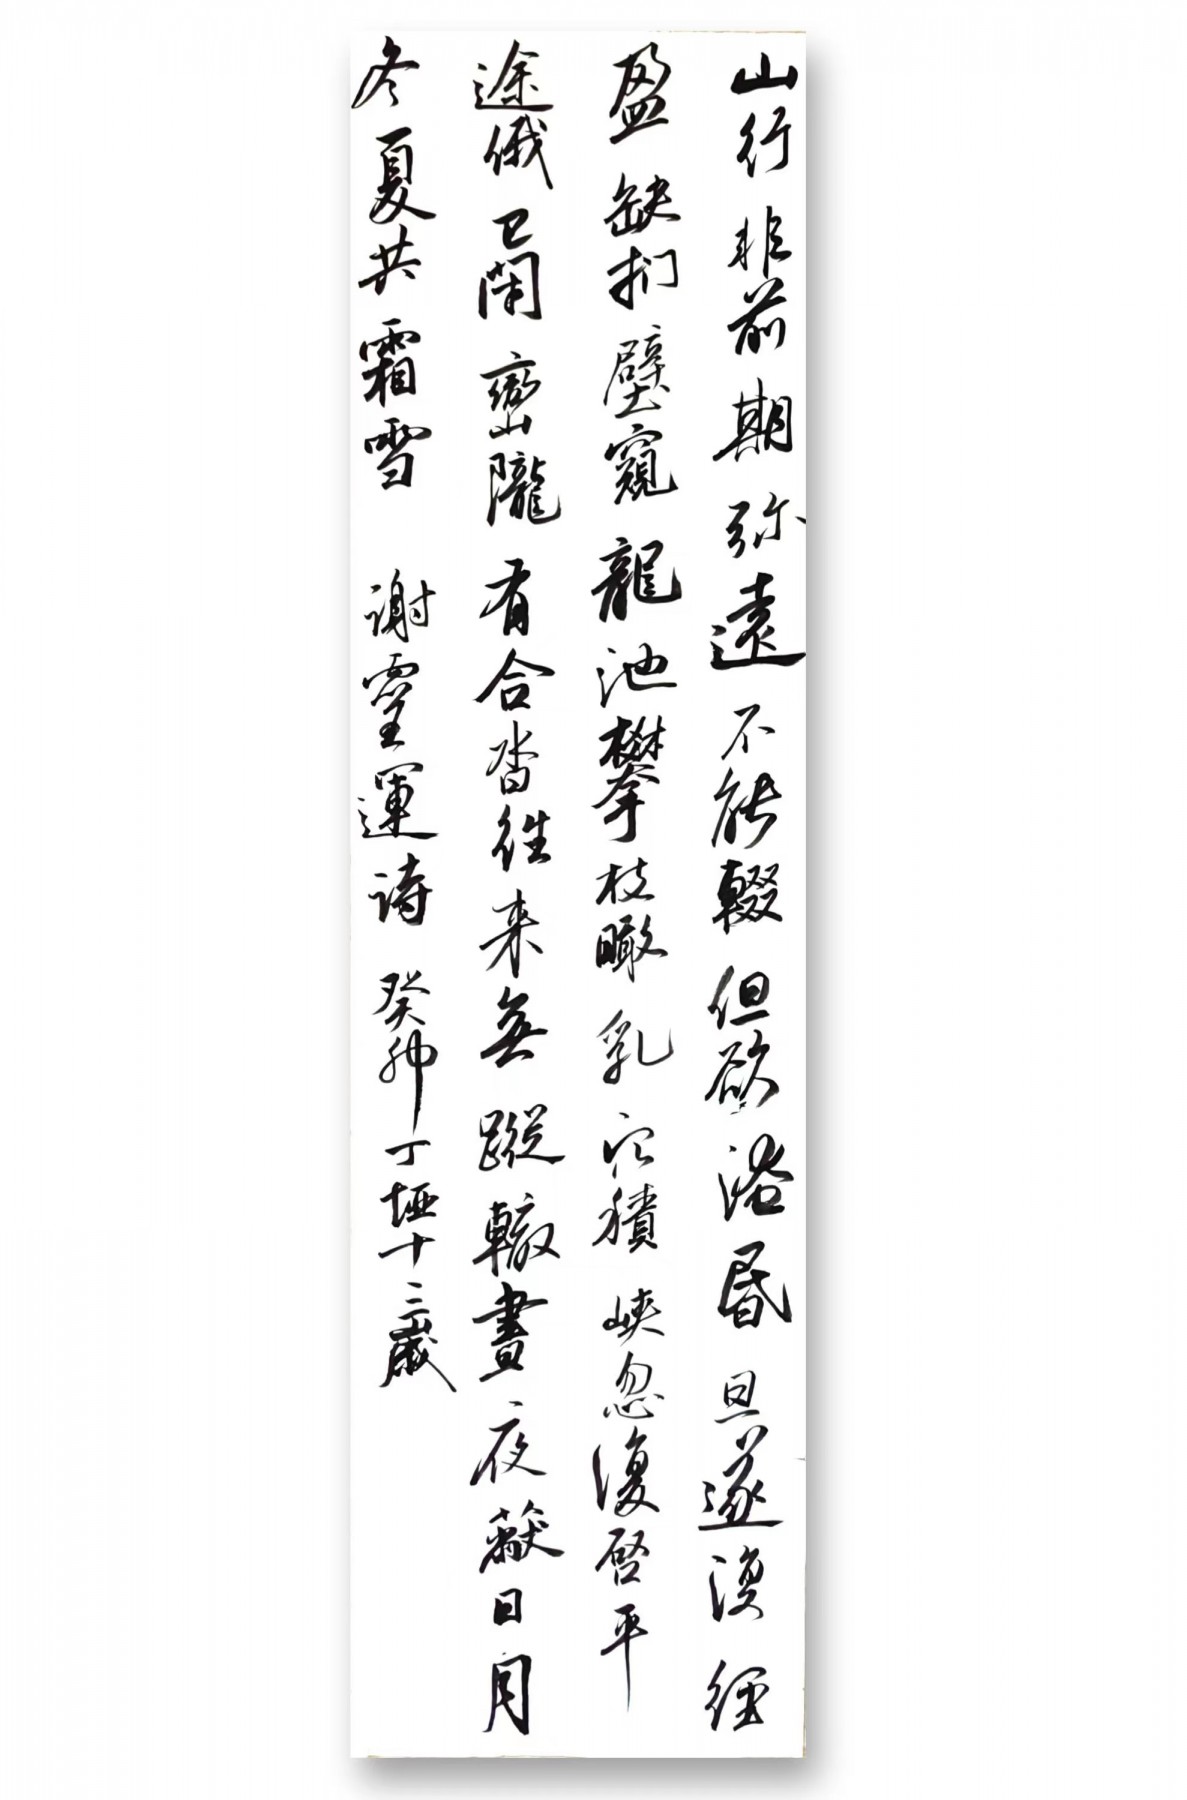 山行非前期弥遠不能輟但欲淹昏旦遂復經
盈缺扪壁窺龍池攀枝瞰乳穴積峡忽復啓平
途俄已閉巒隴有合沓往来無蹤轍晝夜蔽日月
冬夏共霜雪 谢靈運诗 癸卯丁垭十三歲